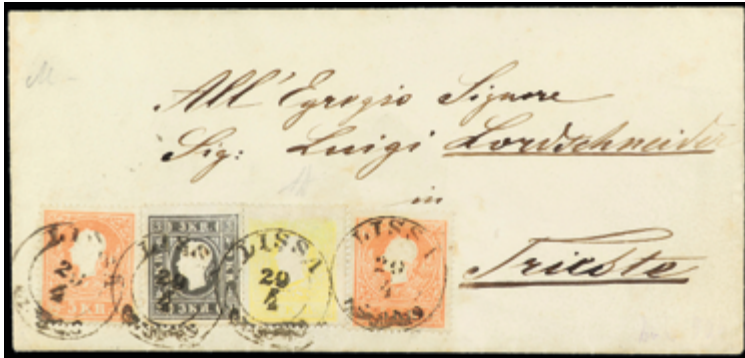 All' Egregio Signore
Sig: Luigi Lordschneider
in
Trieste
LISSA
20
4
3 KR
3 KR
LISSA
20
4
LISSA
20
4
5 KR